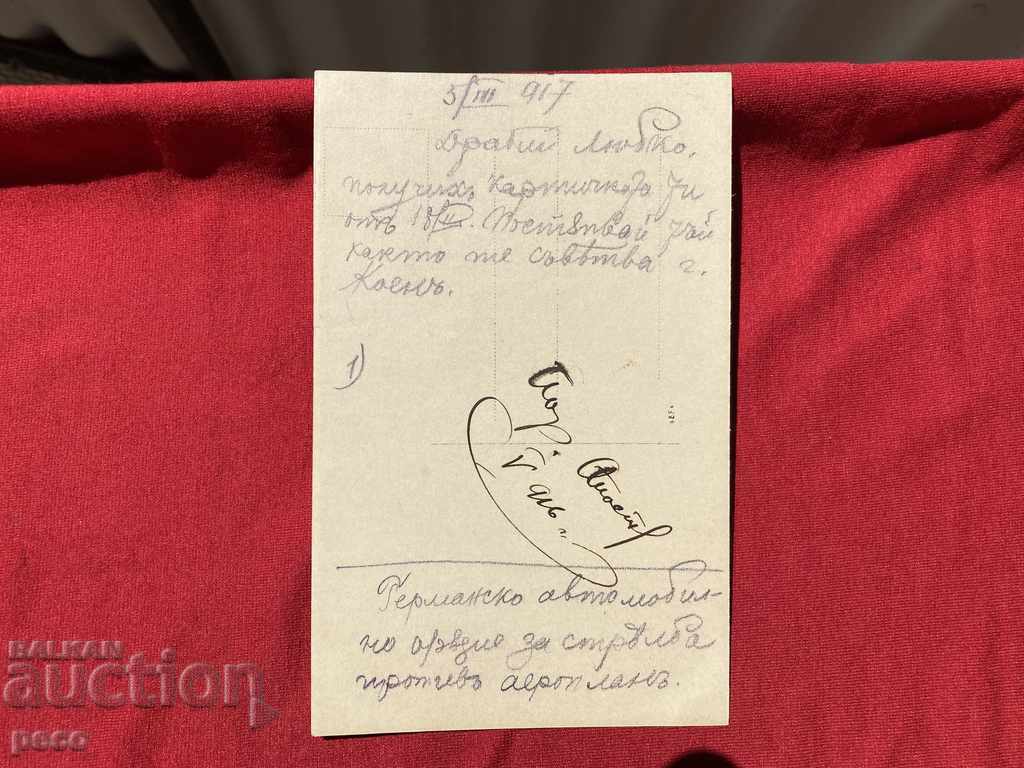 5/III 917
Драгий Любко,
получихъ картичката ти
отъ 18/II. Постѫпвай тъй
както те съвѣтва г.
Коенъ.
1)
V 916 г.
Германско автомобил-
но орѫдие за стрѣлба
противъ аеропланъ.
BALKAN
auction
peco